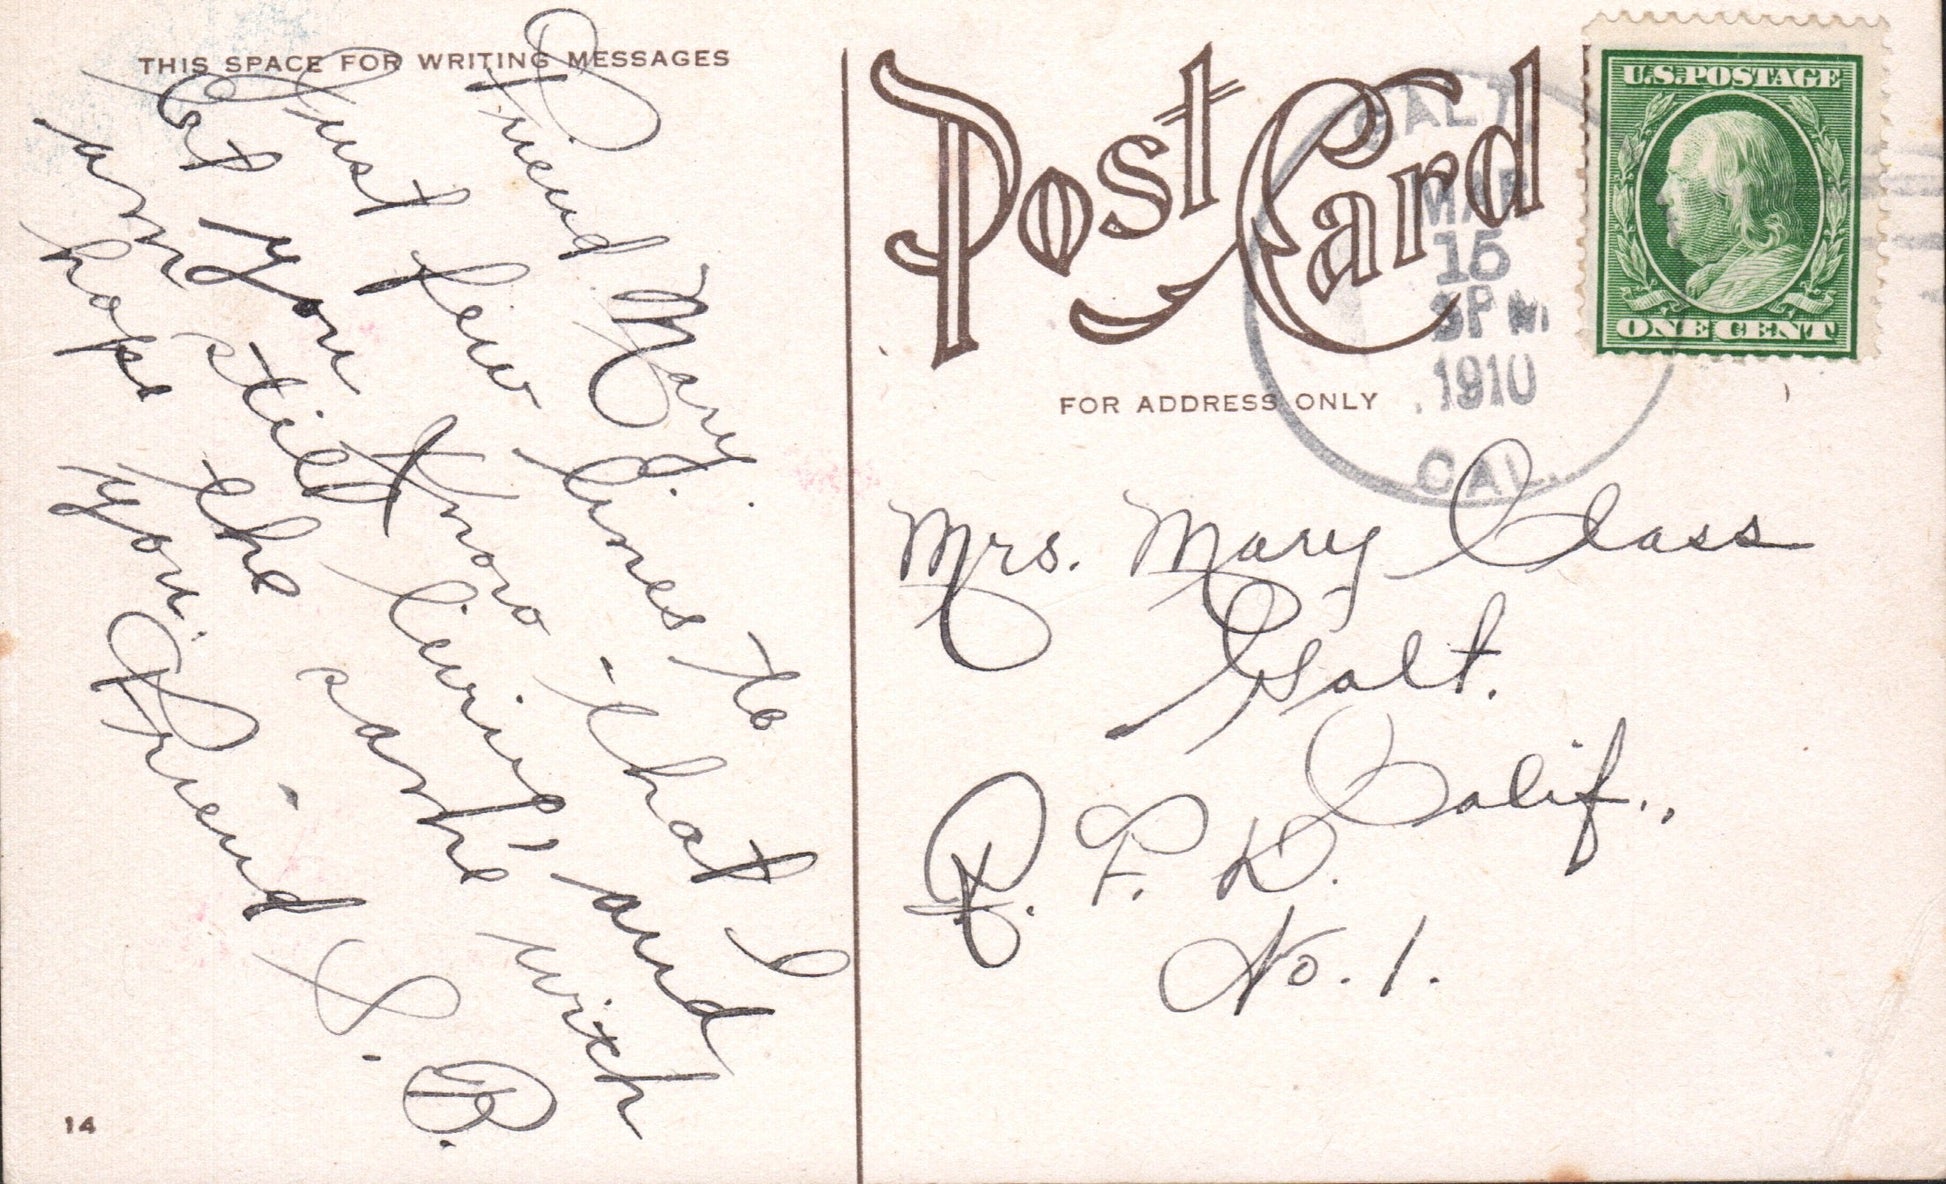 THIS SPACE FOR WRITING MESSAGES
Friend Mary.
Just few lines to
Lat you know that I
am still living, and
hope the same with
you. Friend S. B.
14
Post Card
FOR ADDRESS ONLY
GALT
MAR
15
3PM
1910
CAL.
U.S. POSTAGE
ONE CENT
Mrs. Mary Class
Galt.
Calif.,
R. F. D.
No. 1.